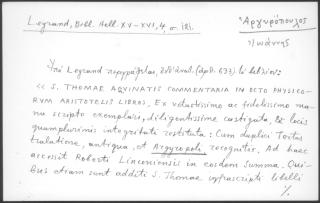 Legrand, Bibl. Hell. XV-XVI, 4, σ. 121.
Ἀργυρόπουλος
Ἰωάννης
Ὑπὸ Legrand περιγράφεται, (ἀρ. 637) τὸ βιβλίον:
« S. THOMAE AQUINATIS COMMENTARIA IN OCTO PHYSICO-
RVM ARISTOTELIS LIBROS, Ex vetustissimo ac fidelissimo ma-
nu scripto exemplari, diligentissime castigata, & locis
quamplurimis integritati restituta: Cum duplici Textus
tralatione, antiqua, et Argyropoli recognitis. Ad haec
accessit Roberti Linconiensis in eosdem Summa. Qui-
bus etiam sunt additi S. Thomae infrascripti libelli